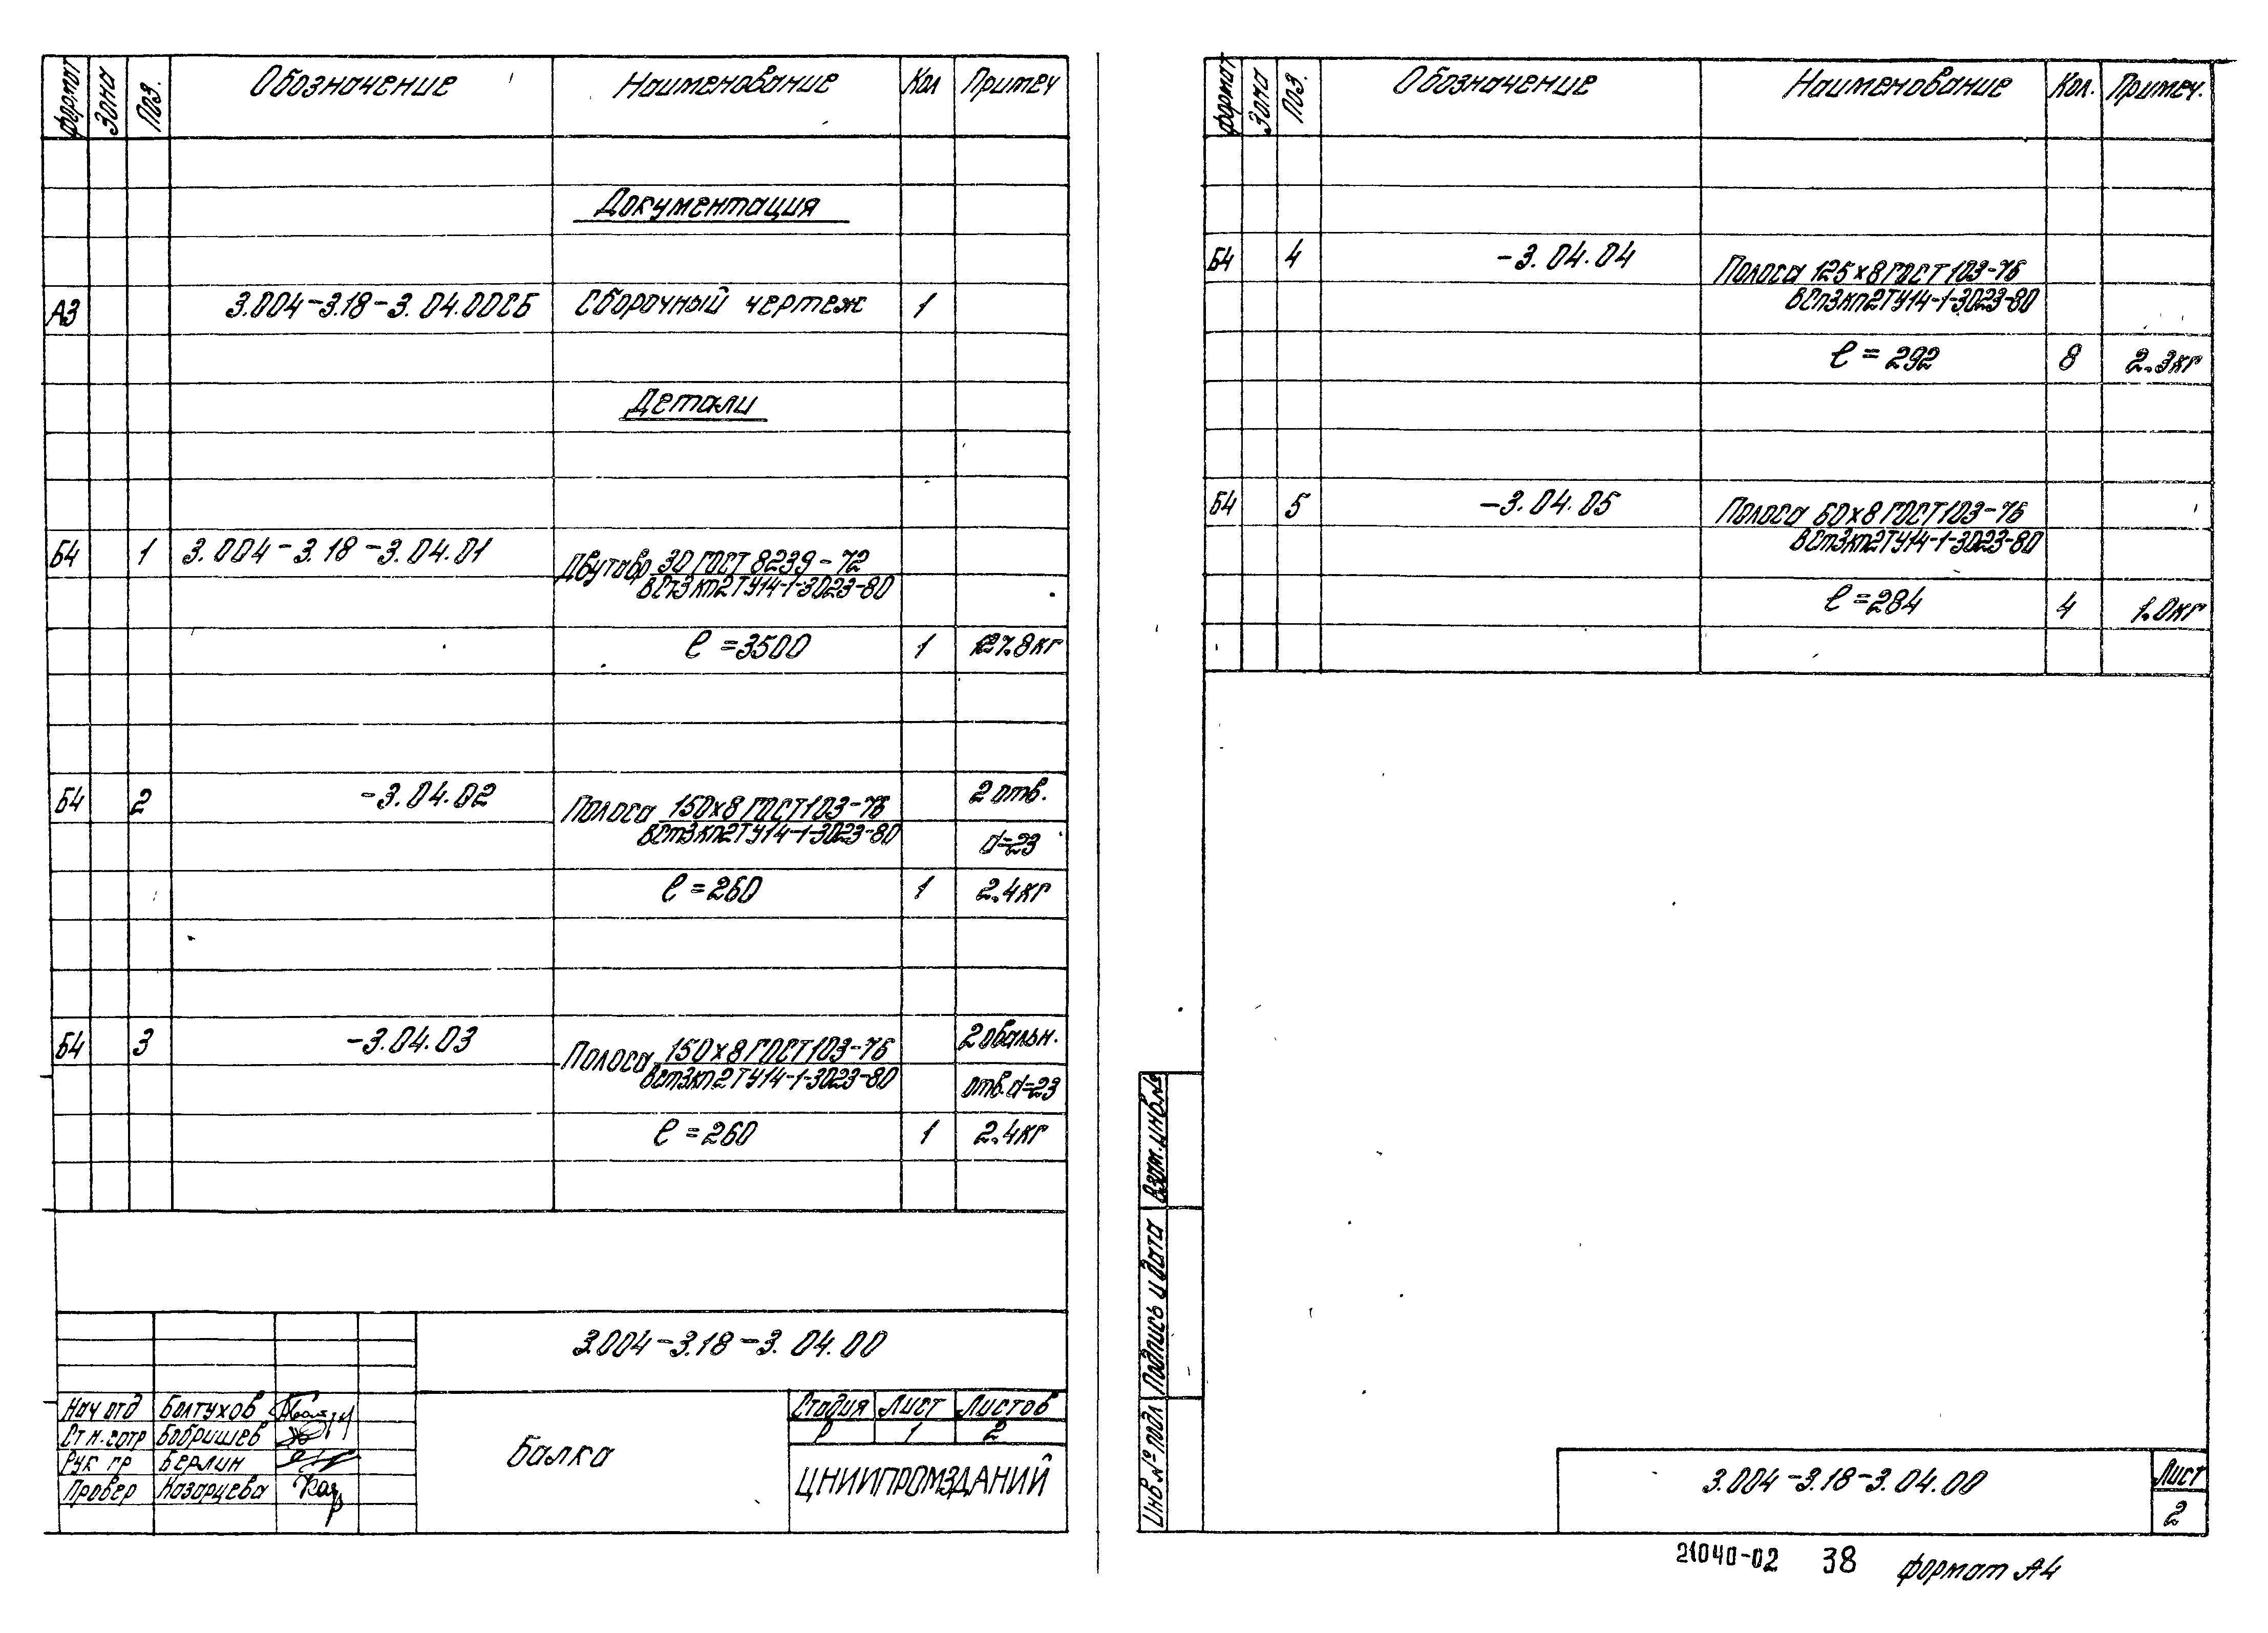 формат Зона Поз. Обозначение Наименование Кол Примеч
Документация
А3 3.004-3.18-3.04.00СБ Сборочный чертеж 1
Детали
Б4 1 3.004-3.18-3.04.01 Двутавр 30 ГОСТ 8239-72
ВСт3кп2ТУ14-1-3023-80
ℓ=3500 1 127.8кг
Б4 2 -3.04.02 Полоса 150х8 ГОСТ103-76 2 отв.
ВСт3кп2ТУ14-1-3023-80 d=23
ℓ=260 1 2.4кг
Б4 3 -3.04.03 Полоса 150х8 ГОСТ103-76 2 овальн.
ВСт3кп2ТУ14-1-3023-80 отв. d=23
ℓ=260 1 2.4кг
3.004-3.18-3.04.00
Нач отд Болтухов
Ст н.сотр Бобришев
Рук гр Берлин
Провер Казарцева
Балка
Стадия Лист Листов
Р 1 2
ЦНИИПРОМЗДАНИЙ
формат Зона Поз. Обозначение Наименование Кол. Примеч.
Б4 4 -3.04.04 Полоса 125х8 ГОСТ103-76
ВСт3кп2ТУ14-1-3023-80
ℓ=292 8 2.3кг
Б4 5 -3.04.05 Полоса 60х8 ГОСТ103-76
ВСт3кп2ТУ14-1-3023-80
ℓ=284 4 1.0кг
Инв.№ подл Подпись и дата Взам.инв.№
3.004-3.18-3.04.00
Лист
2
21040-02 38 формат А4